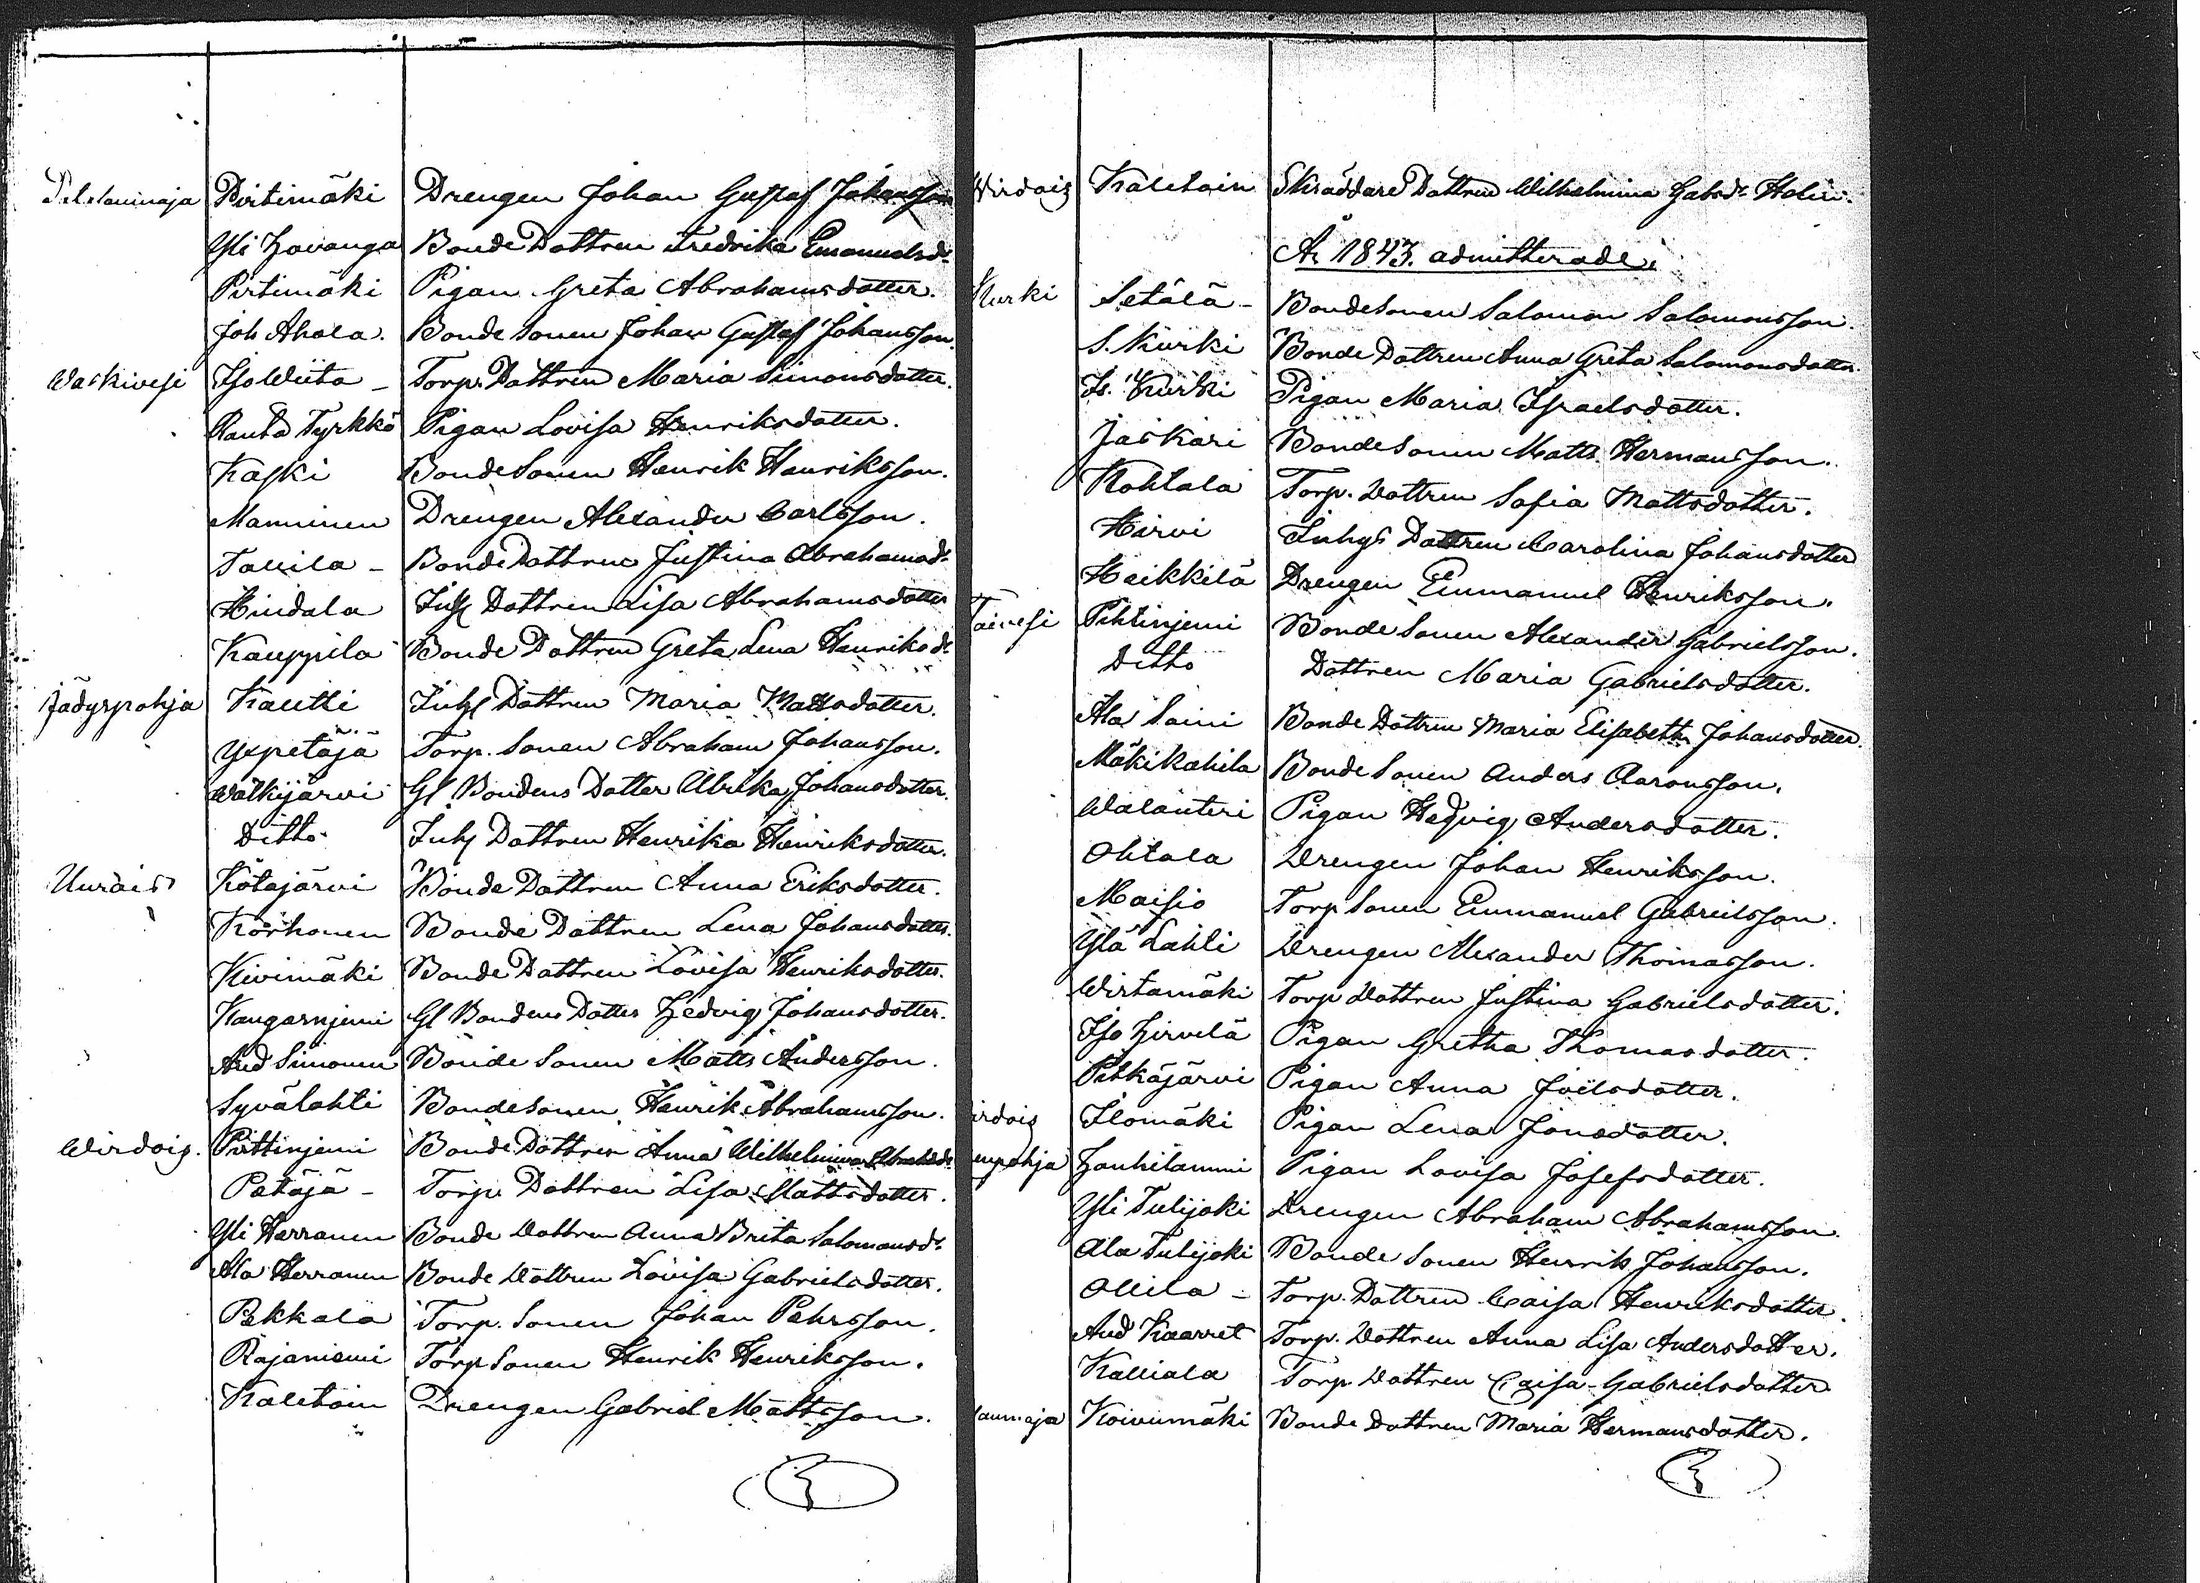 Pirtimäki Drengen Johan Gustaf Johansson
Yli Havanga Bonde Dottren Fredrika Emanuelsdr
Pirtimäki Pigan Greta Abrahamsdotter.
Joh Ahola. Bonde Sonen Johan Gustaf Johansson.
Waskivesi Iso Wiita – Torp. Dottren Maria Simonsdotter.
Ranta Tyrkkö Pigan Lovisa Henriksdotter.
Kaski Bonde Sonen Henrik Henriksson.
Manninen Drengen Alexander Carlsson.
Tallila – Bonde Dottren Justina Abrahamsdr
Hindala Inhs Dottren Lisa Abrahamsdotter
Kauppila Bonde Dottren Greta Lena Henriksdr
Jädyspohja Kautti Inhs Dottren Maria Mattsdotter.
Yxpetäjä Torp. Sonen Abraham Johansson.
Wälkijärvi Gl Bondens Dotter Ulrika Johansdotter.
Ditto Inhs Dottren Henrika Henriksdotter.
Uurais Kotajärvi Bonde Dottren Anna Eriksdotter.
Korhonen Bonde Dottren Lena Johansdotter.
Kivimäki Bonde Dottren Lovisa Henriksdotter.
Kangasnjemi Gl Bondens Dotter Hedvig Johansdotter.
And Simonen Bonde Sonen Matts Andersson.
Syvälahti Bonde Sonen Henrik Abrahamsson.
Wirdois. Pottinjemi Bonde Dottren Anna Wilhelmina
Petäjä – Torp. Dottren Lisa Mattsdotter.
Yli Herranen Bonde Dottren Anna Brita Salomonsdr
Ala Herranen Bonde Dottren Lovisa Gabrielsdotter.
Pekkala Torp. Sonen Johan Pehrsson.
Rajaniemi Torp Sonen Henrik Henriksson.
Kaletoin Drengen Gabriel Mattsson.
Wirdois Kaletoin Skräddare Dottren Wilhelmina Gabsdr Holin.
År 1843. admitterade:
Kurki Setälä – Bonde Sonen Salomon Salomonsson.
S. Kurki Bonde Dottren Anna Greta Salomonsdotter.
Is. Kurki Pigan Maria Israelsdotter.
Jäskäri Bonde Sonen Matts Hermansson.
Kohtala Torp. Dottren Sofia Mattsdotter.
Hirvi Inhys Dottren Carolina Johansdotter
Heikkilä Drengen Emmanuel Henriksson.
Pihtinjemi Bonde Sonen Alexander Gabrielsson.
Ditto Dottren Maria Gabrielsdotter.
Ala Saini Bonde Dottren Maria Elisabeth Johansdotter
Mäkikahila Bonde Sonen Anders Aaronsson.
Walanteri Pigan Hedvig Andersdotter.
Ohtola Drengen Johan Henriksson.
Maisio Torp Sonen Emmanuel Gabrielsson.
Ylä Lahti Drengen Alexander Thomasson.
Wirtamäki Torp Dottren Justina Gabrielsdotter.
Iso Hirvelä Pigan Gretha Thomasdotter.
Pitkäjärvi Pigan Anna Joelsdotter.
irdois Ilomäki Pigan Lena Jonsdotter.
enpohja Hanhilammi Pigan Lovisa Josefsdotter.
Yli Tulijoki Drengen Abraham Abrahamsson.
Ala Tulijoki Bonde Sonen Henrik Johansson.
Ollila – Torp. Dottren Caisa Henriksdotter.
And Kaarret Torp. Dottren Anna Lisa Andersdotter.
Kalliala Torp. Dottren Caisa Gabrielsdotter
aumaja Koivumäki Bonde Dottren Maria Hermansdotter.